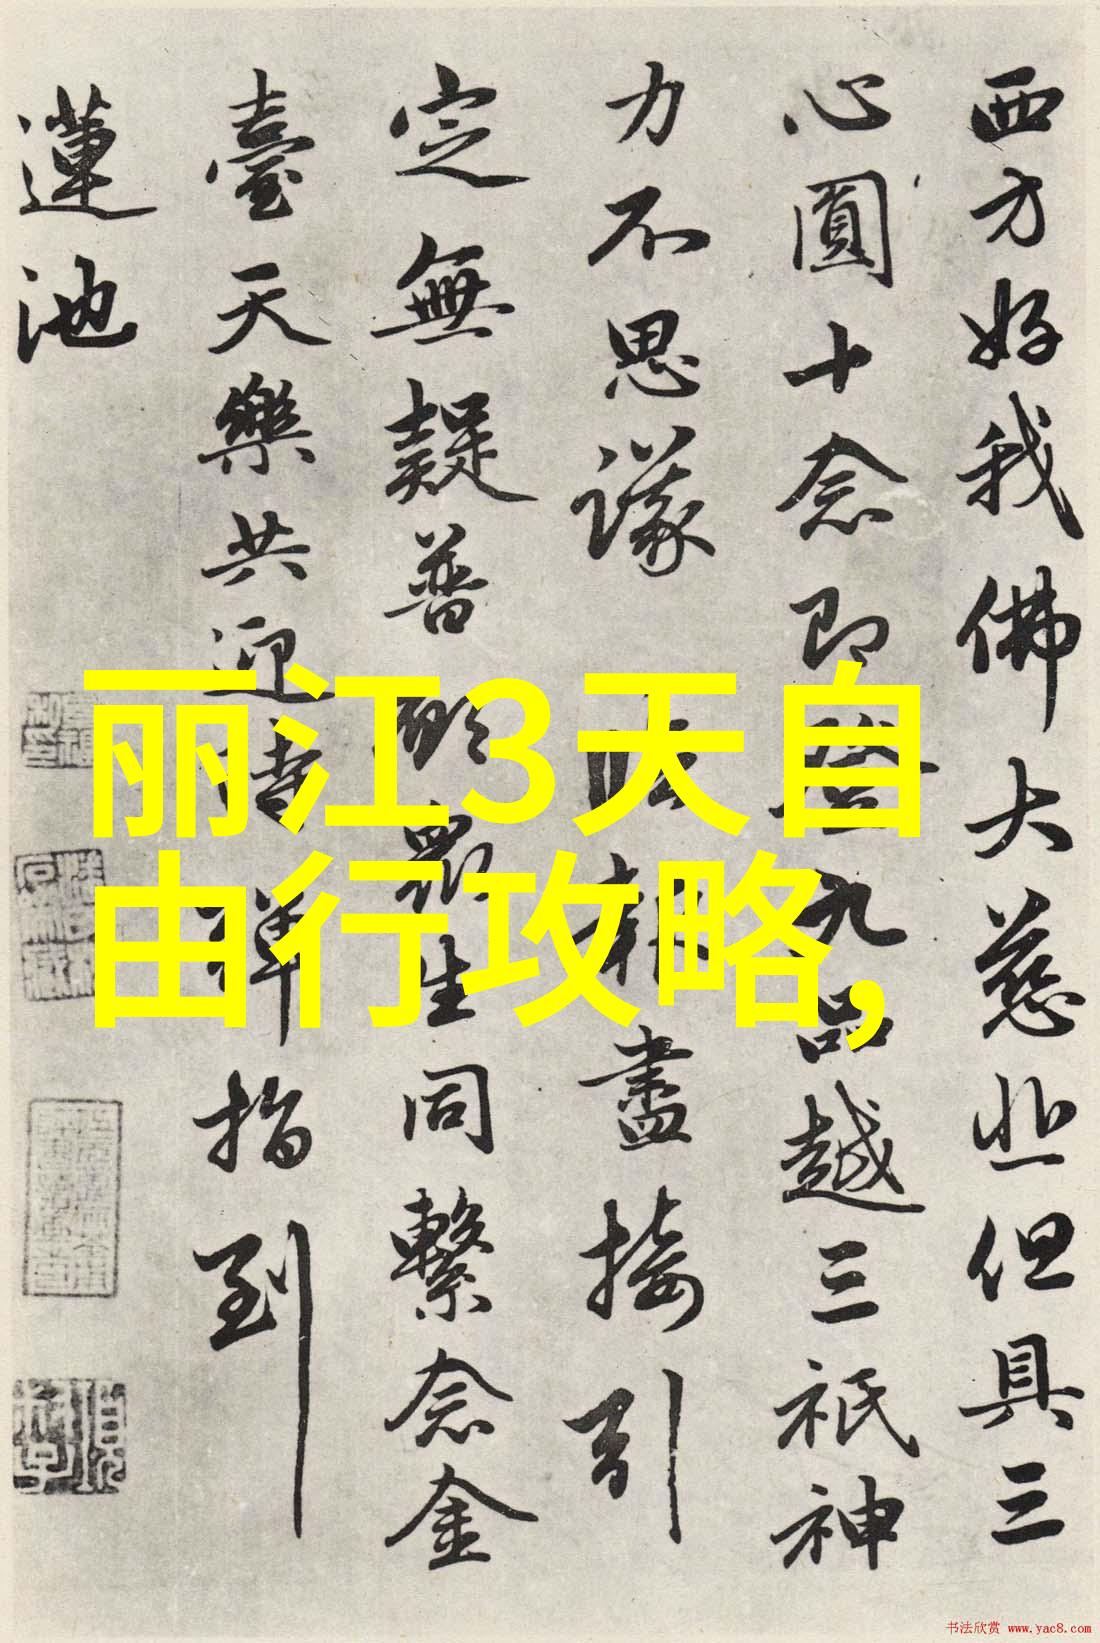 西方好我佛大慈悲但具三
心圓十念即登九品越三祇神
力不思議報盡接引
定無疑普願眾生同繫念金
臺天樂共迎時彈指到
蓮池
丽江3天自
由行攻略,
书法欣赏 www.yac8.com